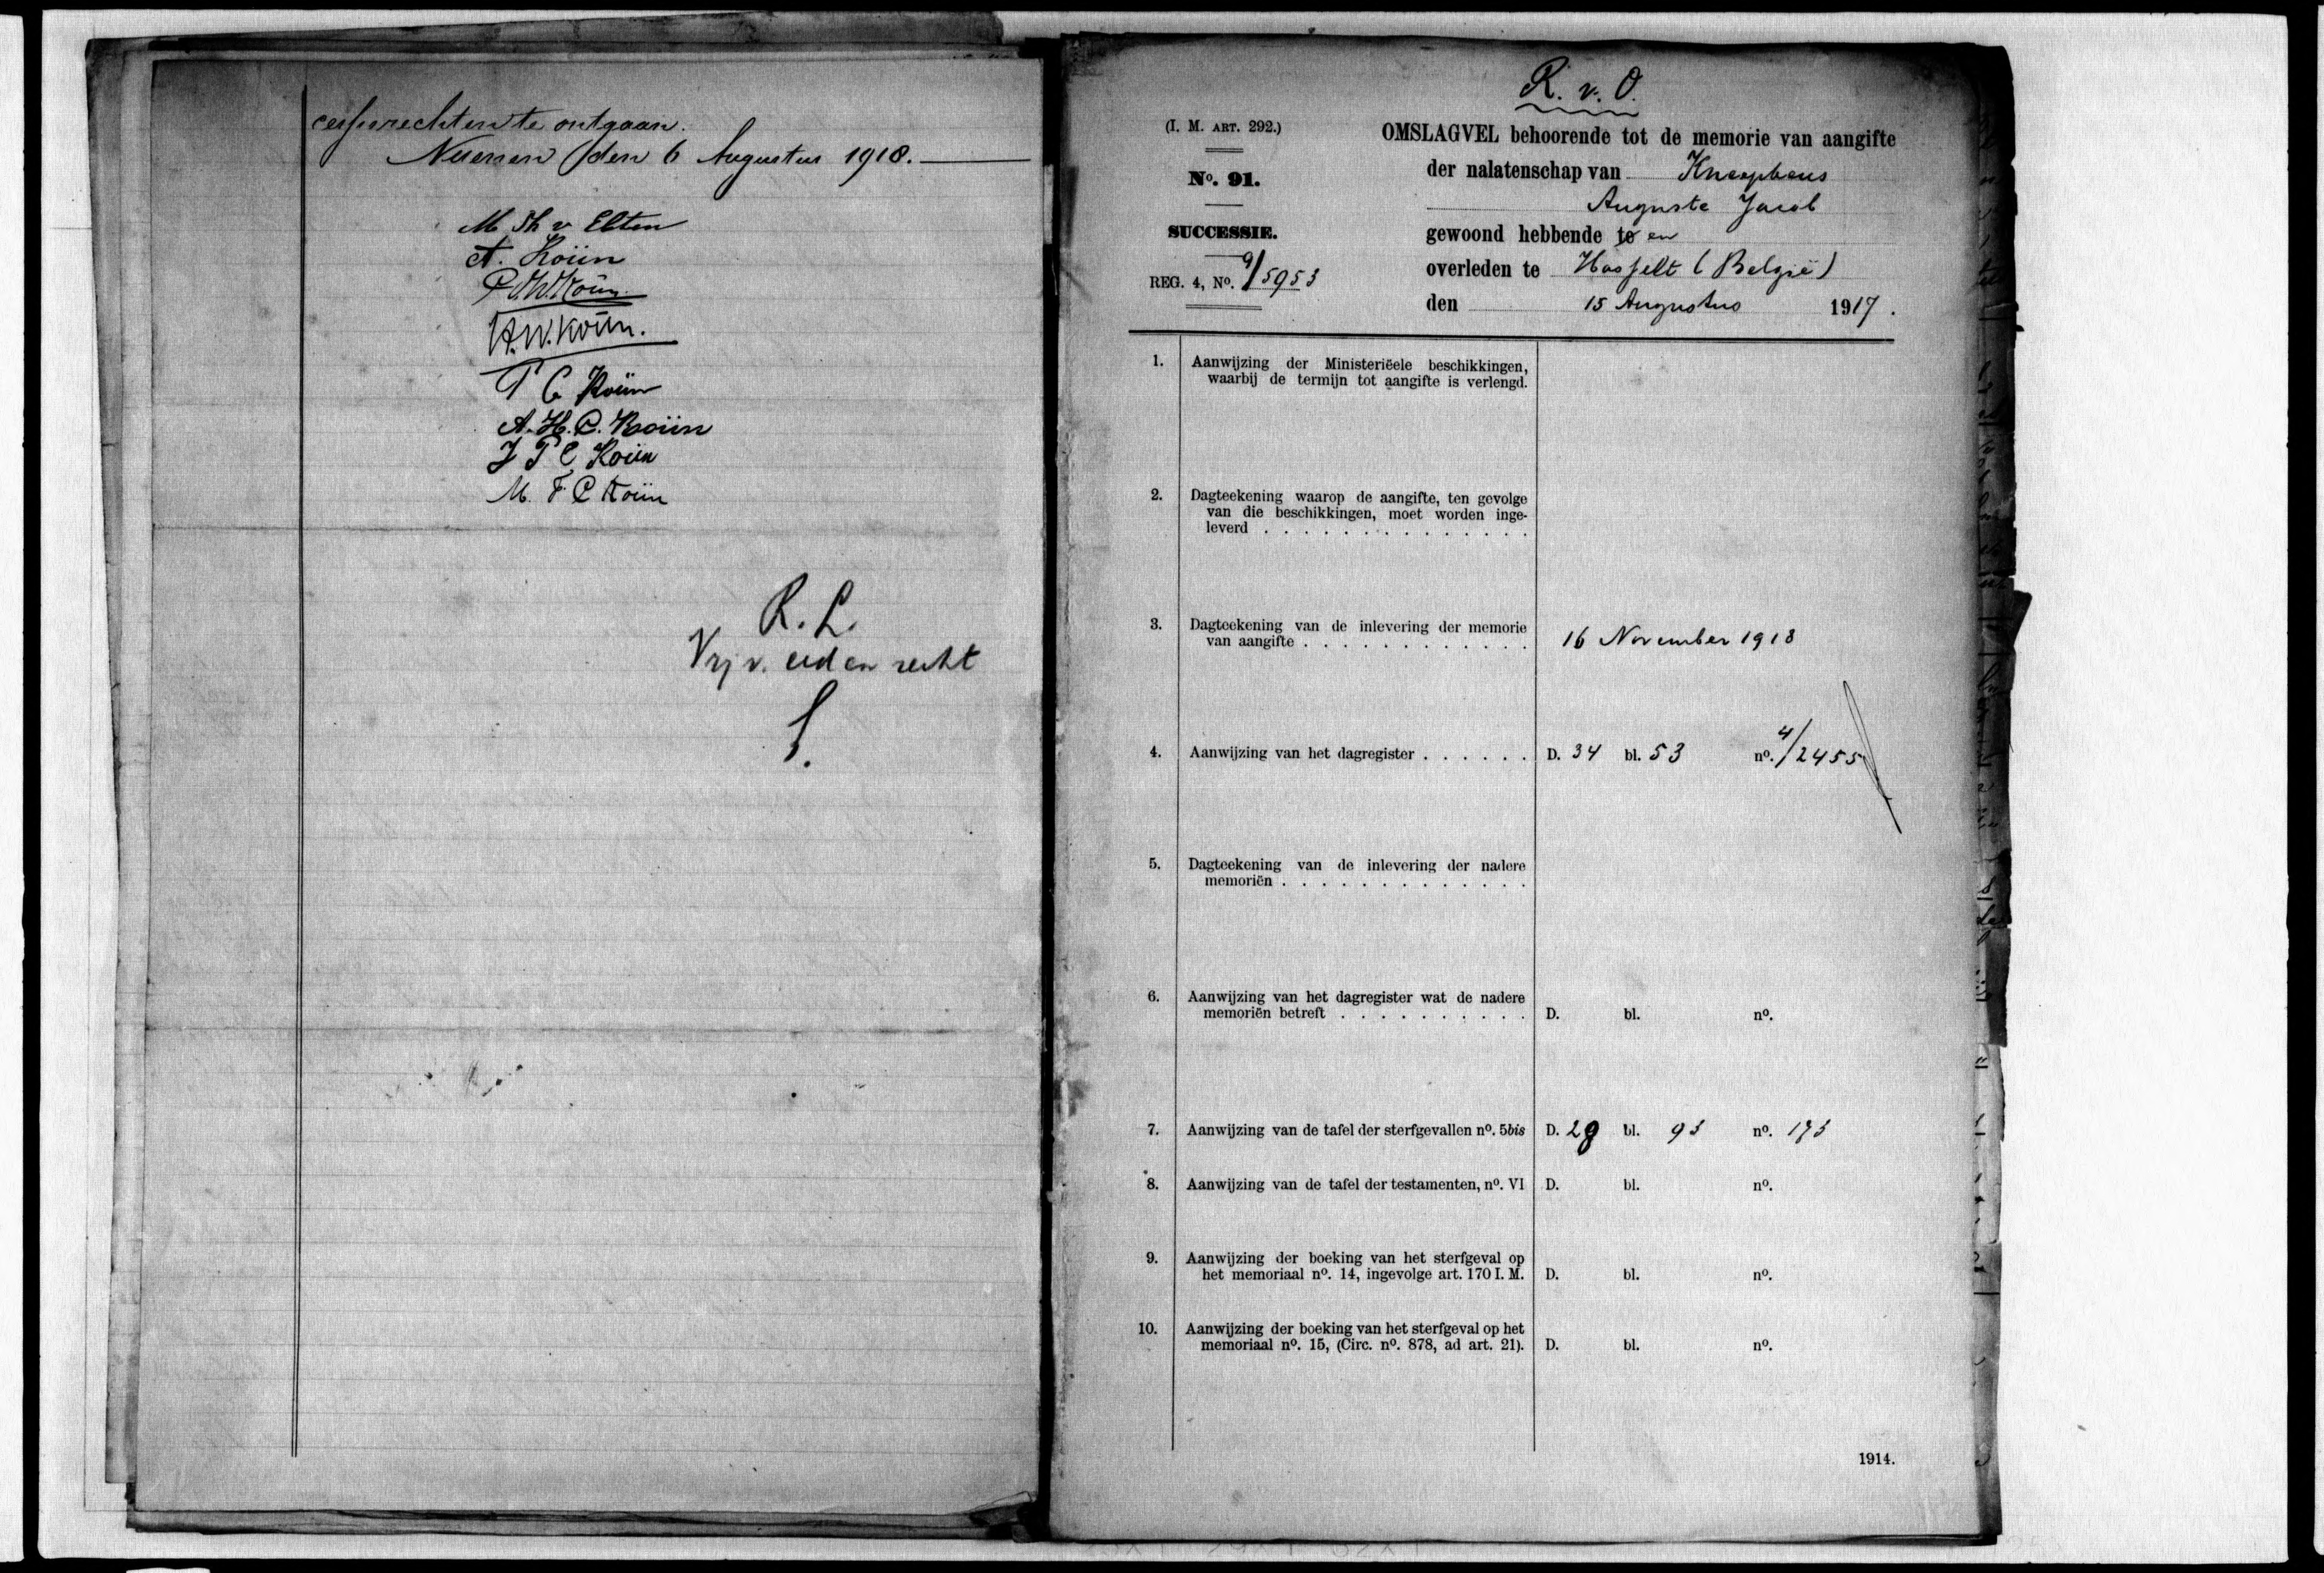 cessierechten te ontgaan.
Nuenen den 6 Augustus 1918.
M Th v Elten
A. Koün
P.J.W. Koün.
H.W. Koün.
P C Koün
A. H. C. Koün
J P C Koün
M. F. C Koün
R. L.
Vrij v. eed en recht
R. v. O.
(I. M. ART. 292.)
No. 91.
SUCCESSIE.
REG. 4, No. 9/5953
OMSLAGVEL behoorende tot de memorie van aangifte
der nalatenschap van Knaepkens
Auguste Jacob
gewoond hebbende te en
overleden te Hasselt (België)
den 15 Augustus 1917.
1. Aanwijzing der Ministerieele beschikkingen,
waarbij de termijn tot aangifte is verlengd.
2. Dagteekening waarop de aangifte, ten gevolge
van die beschikkingen, moet worden inge-
leverd . . . . . . . . . . . . . .
3. Dagteekening van de inlevering der memorie
van aangifte . . . . . . . . . . . . 16 November 1918
4. Aanwijzing van het dagregister . . . . . . D. 34 bl. 53 no. 4/2455
5. Dagteekening van de inlevering der nadere
memoriën . . . . . . . . . . . . .
6. Aanwijzing van het dagregister wat de nadere
memoriën betreft . . . . . . . . . . D. bl. no.
7. Aanwijzing van de tafel der sterfgevallen no. 5bis D. 29 bl. 93 no. 173
8. Aanwijzing van de tafel der testamenten, no. VI D. bl. no.
9. Aanwijzing der boeking van het sterfgeval op
het memoriaal no. 14, ingevolge art. 170 I. M. D. bl. no.
10. Aanwijzing der boeking van het sterfgeval op het
memoriaal no. 15, (Circ. no. 878, ad art. 21). D. bl. no.
1914.